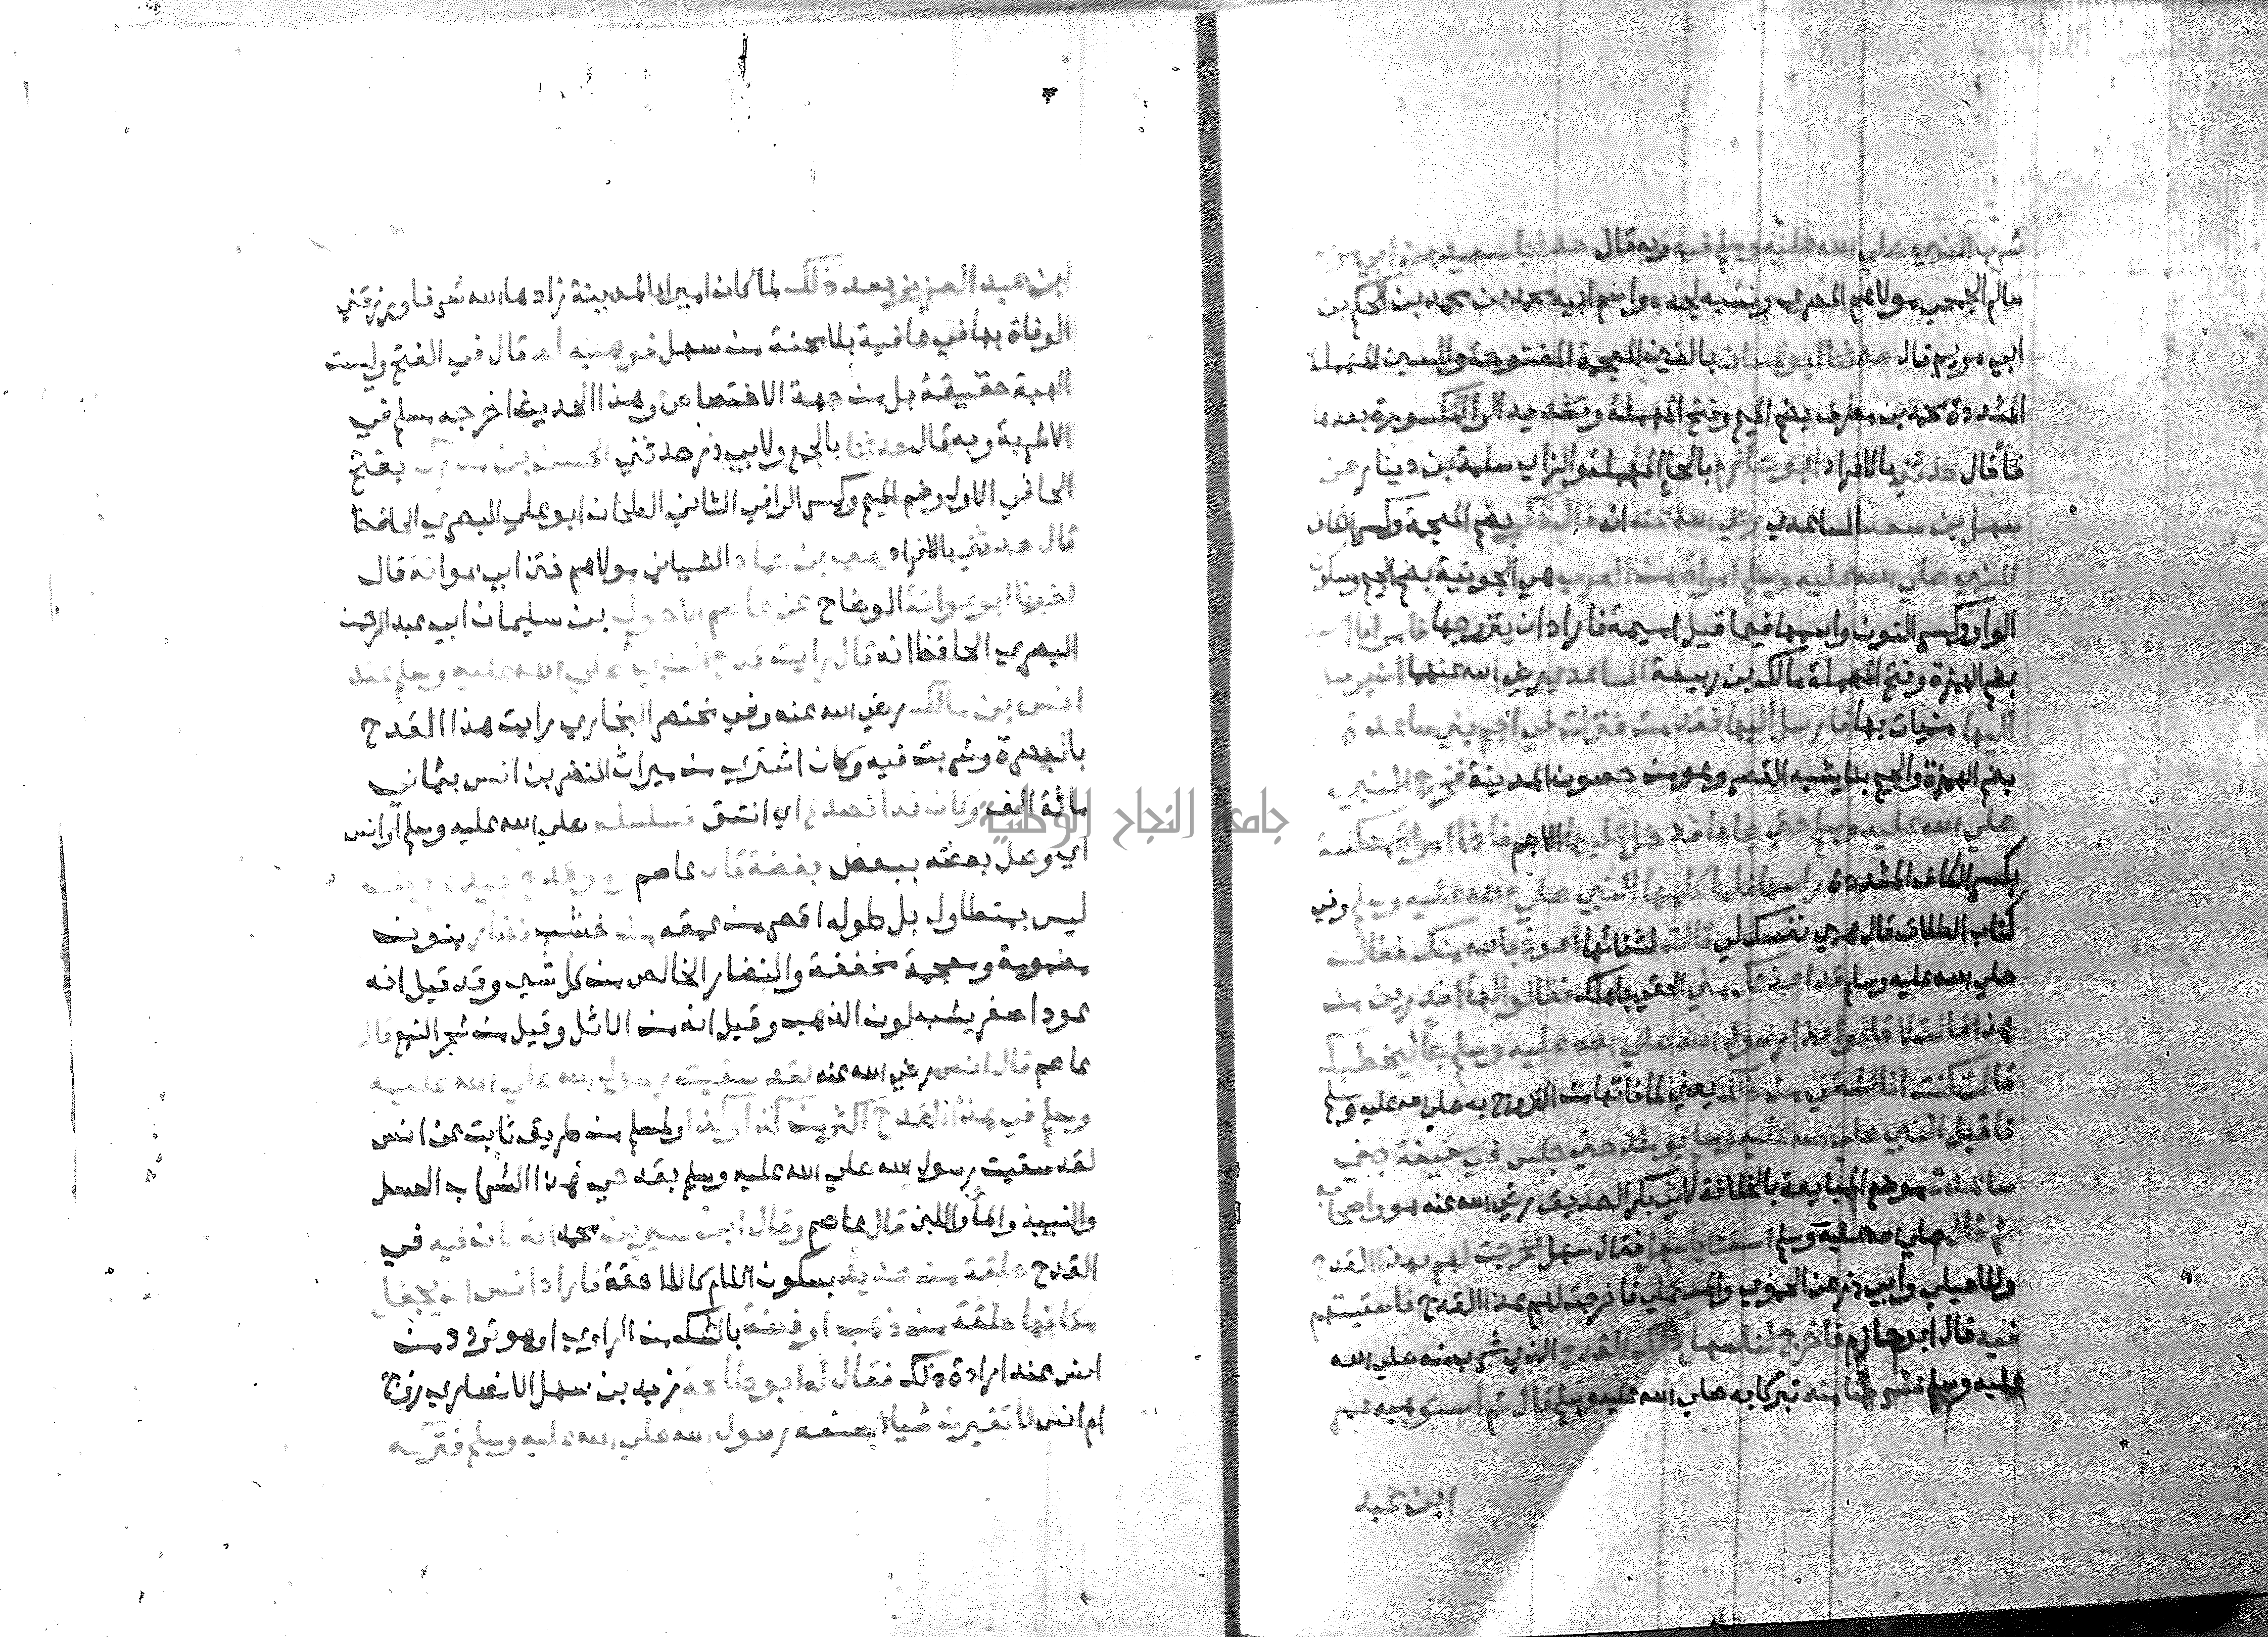 شرب النبي صلي الله عليه وسلم فيه وبه قال حدثنا سعيد بن ابي مريم
سالم الجمحي مولاهم المصري ونسبه لجده واسم ابيه محمد بن الحكم بن
ابي مريم قال حدثنا ابو غسان بالغين المعجمة المفتوحة والسين المهملة
المشددة محمد بن مطرف بضم الميم وفتح المهملة وتشديد الرا المكسورة بعدها
فا قال حدثني بالافراد ابو حازم بالحا المهملة والزاي سلمة بن دينار عن
سهل بن سعد الساعدي رضي الله عنه انه قال ذكر بضم المعجمة وكسر الكاف
للنبي صلي الله عليه وسلم امراة من العرب هي الجونية بفتح الجيم وسكون
الواو وكسر النون واسمها فيما قيل اميمة فاراد ان يتزوجها فامر ابا اسيد
بضم الهمزة وفتح المهملة مالك بن ربيعة الساعدي رضي الله عنهما ان يرسل
اليها من يات بها فارسل اليها فقدمت فنزلت في اجم بني ساعدة
بضم الهمزة والجيم بنا يشبه القصر وهو من حصون المدينة فخرج النبي
صلي الله عليه وسلم حتي جاها فدخل عليها الاجم فاذا امراة منكسة
بكسر الكاف المشددة راسها فلما كلمها النبي صلي الله عليه وسلم وفي
كتاب الطلاق قال هبي نفسك لي قالت لشقائها اعوذ بالله منك فقال
صلي الله عليه وسلم قد اعذتك مني الحقي باهلك فقالوا لها اتدرين من
هذا قالت لا قالوا هذا رسول الله صلي الله عليه وسلم جا ليخطبك
قالت كنت انا اشقي من ذلك يعني لما فاتها من التزوج به صلي الله عليه وسلم
فاقبل النبي صلي الله عليه وسلم يومئذ حتي جلس في سقيفة بني
ساعدة موضع المبايعة بالخلافة لابي بكر الصديق رضي الله عنه هو واصحابه
ثم قال صلي الله عليه وسلم اسقنا يا سهل فقال سهل فخرجت لهم بهذا القدح
وللاصيلي وابي ذر عن الحموي والمستملي فاخرجت لهم هذا القدح فاسقيتهم
فيه قال ابو حازم فاخرج لنا سهل ذلك القدح الذي شرب منه صلي الله
عليه وسلم فشربنا منه تبركا به صلي الله عليه وسلم قال ثم استوهبه عمر
ابن عبد
ابن عبد العزيز بعد ذلك لما كان امير المدينة زادها الله شرفا ورزقني
الوفاة بها في عافية بلا محنة من سهل فوهبه له قال في الفتح وليست
الهبة حقيقة بل من جهة الاختصاص وهذا الحديث اخرجه مسلم في
الاشربة وبه قال حدثنا بالجمع ولابي ذر حدثني الحسن بن مدرك بفتح
الحا في الاول وضم الميم وكسر الرا في الثاني الطحان ابو علي البصري الحافظ
قال حدثني بالافراد يحيي بن حماد الشيباني مولاهم ختن ابي عوانة قال
اخبرنا ابو عوانة الوضاح عن عاصم الاحول بن سليمان ابي عبد الرحمن
البصري الحافظ انه قال رايت قدح النبي صلي الله عليه وسلم عند
انس بن مالك رضي الله عنه وفي مختصر البخاري رايت هذا القدح
بالبصرة وشربت فيه وكان اشتري من ميراث النضر بن انس بثماني
مائة الف وكان قد انصدع اي انشق فسلسله صلي الله عليه وسلم او انس
اي وصل بعضه ببعض بفضة قال عاصم وهو قدح جيد عريض
ليس بمتطاول بل طوله اقصر من عمقه من خشب نضار بنون
مضمومة ومعجمة مخففة والنضار الخالص من كل شي وقد قيل انه
عود اصفر يشبه لون الذهب وقيل انه من الاثل وقيل من شجر النبع قال
عاصم قال انس رضي الله عنه لقد سقيت رسول الله صلي الله عليه
وسلم في هذا القدح اكثر من كذا وكذا ولمسلم من طريق ثابت عن انس
لقد سقيت رسول الله صلي الله عليه وسلم بقدحي هذا الشراب العسل
والنبيذ والما واللبن قال عاصم وقال ابن سيرين محمد انه كان فيه في
القدح حلقة من حديد بسكون اللام كاللاحقة فاراد انس ان يجعل
مكانها حلقة من ذهب او فضة بالشك من الراوي او هو تردد من
انس عند ارادة ذلك فقال له ابو طلحة زيد بن سهل الانصاري زوج
ام انس لا تغيرن شيا صنعه رسول الله صلي الله عليه وسلم فتركه
جامعة النجاح الوطنية